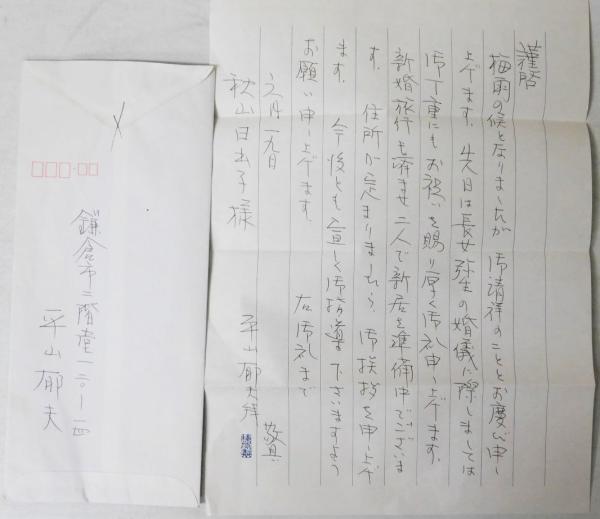 謹啓
梅雨の候となりましたが 御清祥のこととお慶び申し
上げます。先日は長女弥生の婚儀に際しましては
御丁重にもお祝いを賜り厚く御礼申し上げます。
新婚旅行も済ませ二人で新居を準備中でございま
す。 住所が定まりましたら 御挨拶を申し上げ
ます。 今後とも宜しく御指導下さいますよう
お願い申し上げます。 右御礼まで
敬具
六月一九日
平山郁夫拝
秋山日出子様
鎌倉市二階堂
平山郁夫